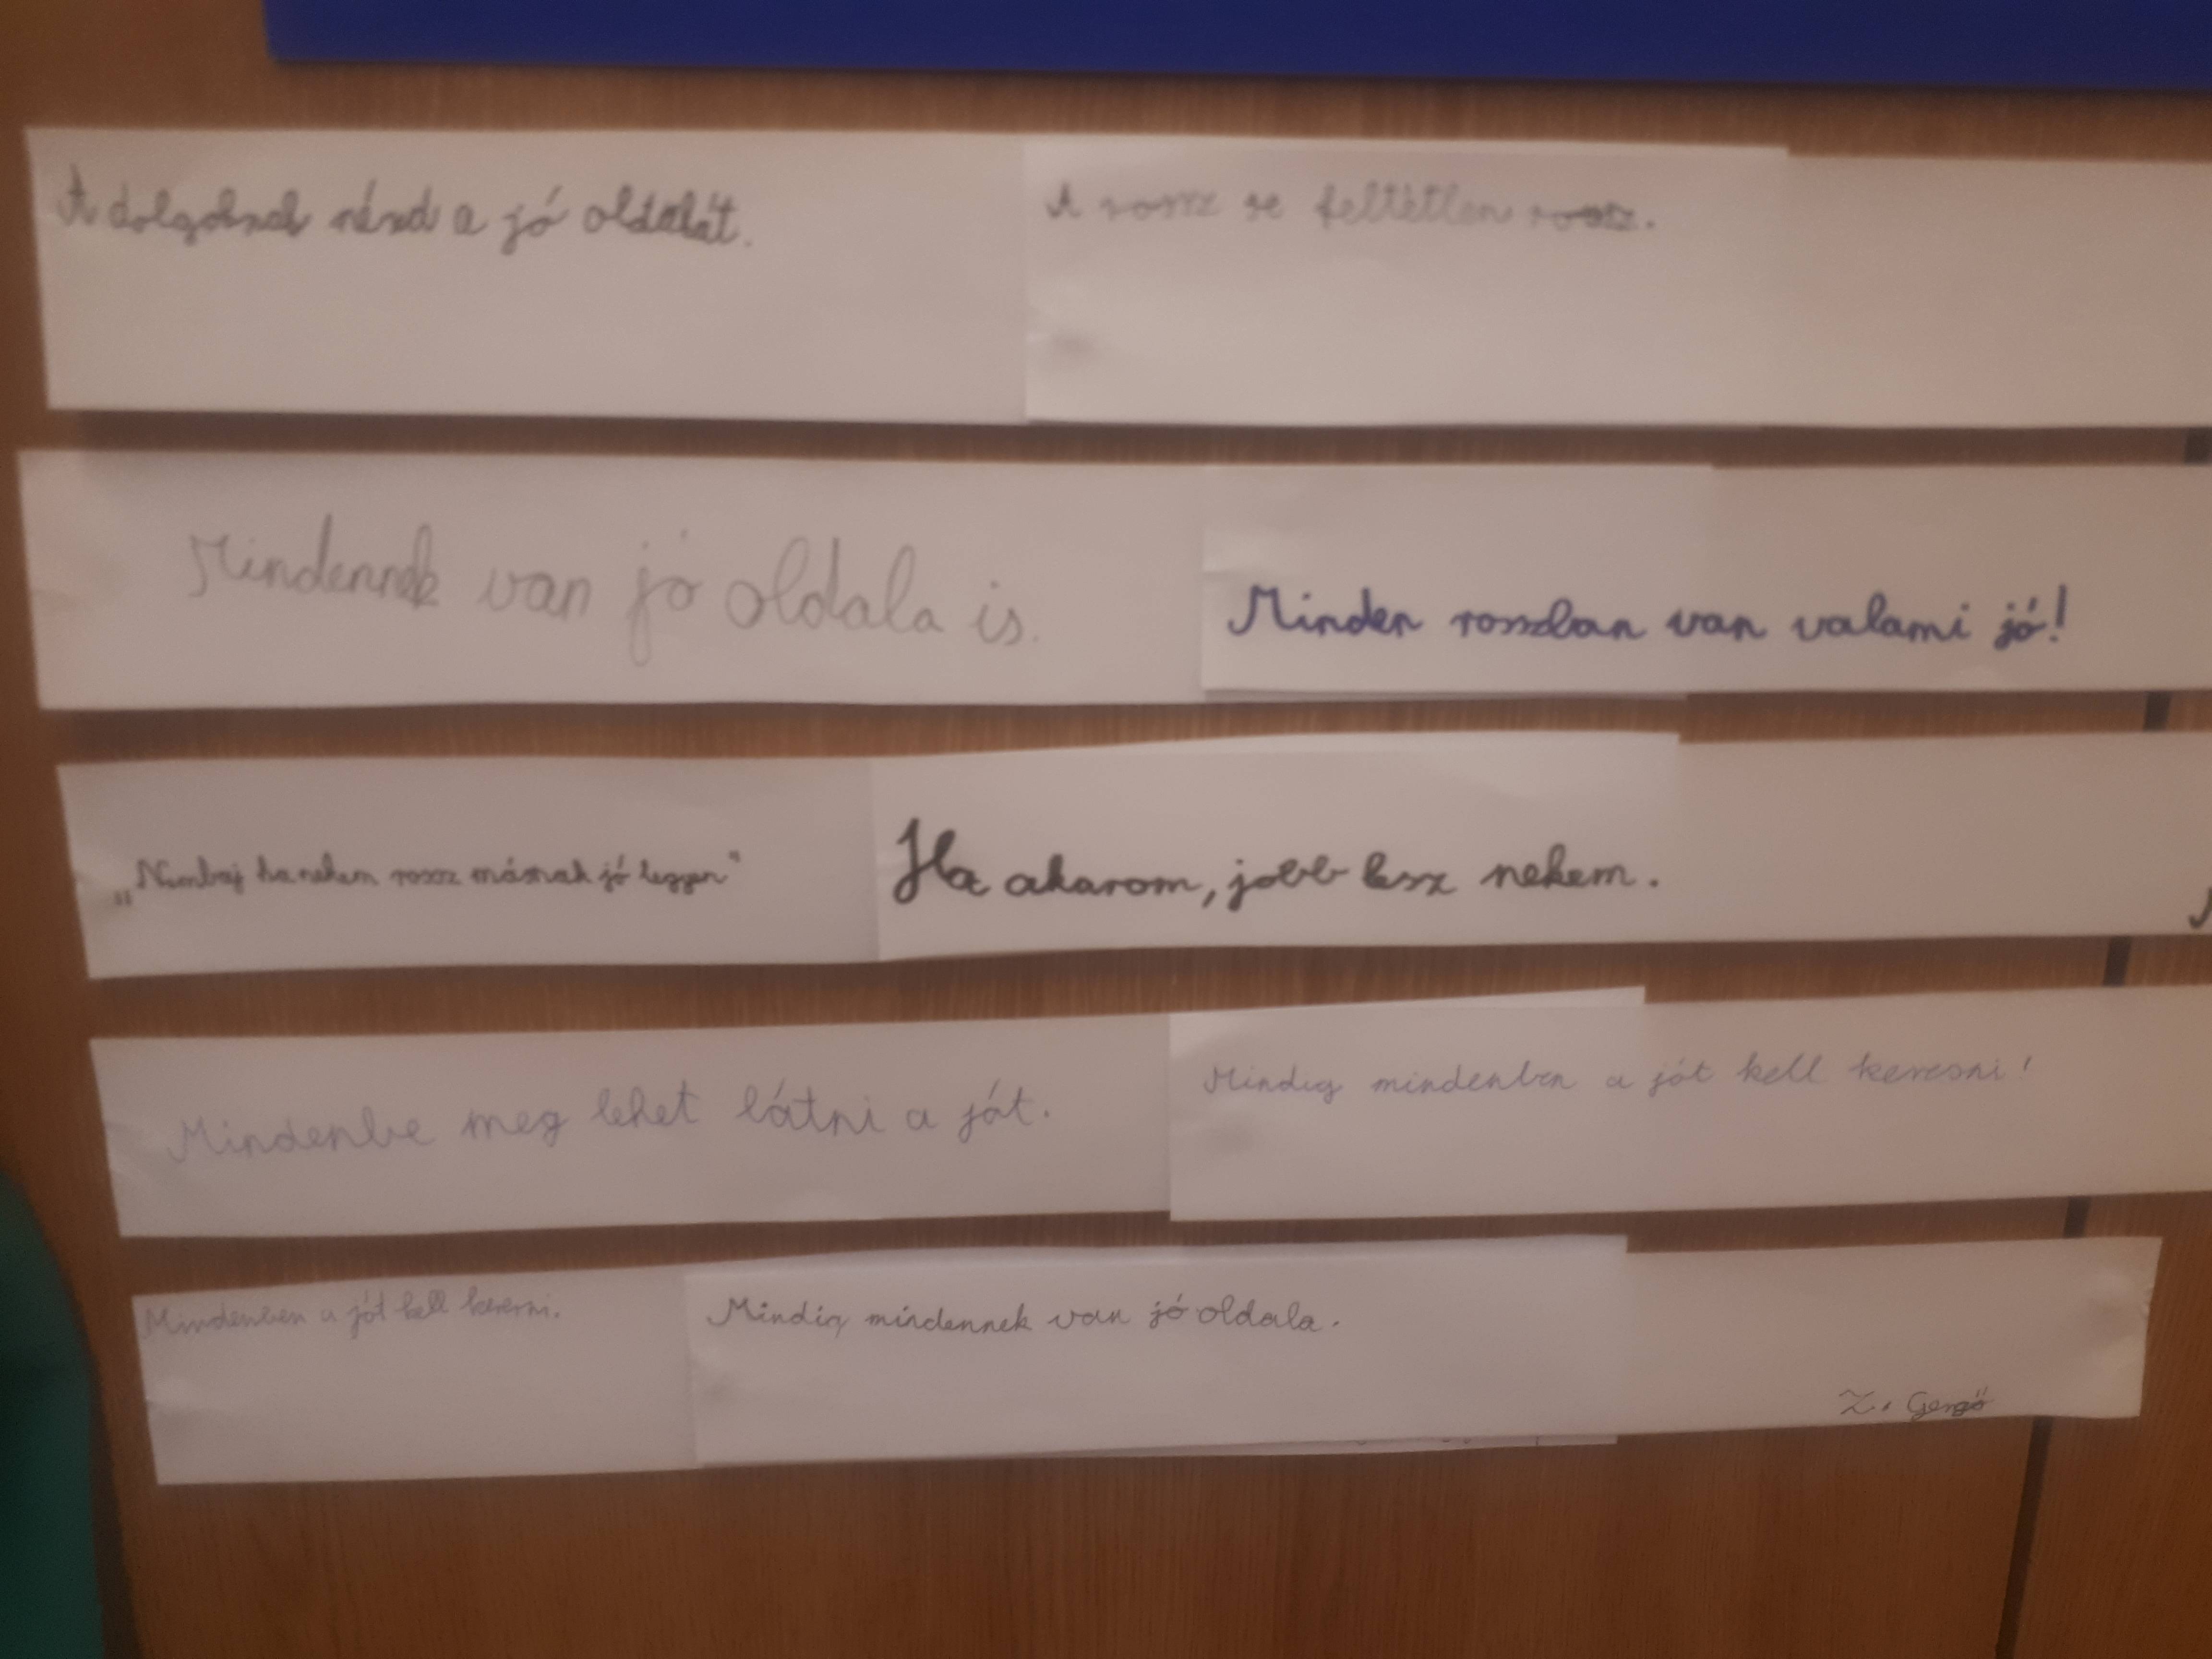 A dolgoknak nézd a jó oldalát.
A rossz se feltétlen rossz.
Mindennek van jó oldala is.
Minden rosszban van valami jó!
„Nembaj ha nekem rossz másnak jó legyen”
Ha akarom, jobb lesz nekem.
Mindenbe meg lehet látni a jót.
Mindig mindenben a jót kell keresni!
Mindenben a jót kell keresni.
Mindig mindennek van jó oldala.
Z. Gergő